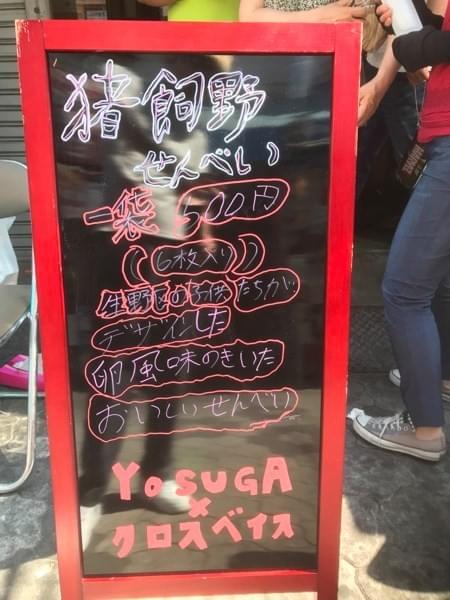 猪飼野
せんべい
一袋 500円
(6枚入り)
生野区の子供たちが
デザインした
卵風味のきいた
おいしいせんべい
YoSUGA
×
クロスベイス